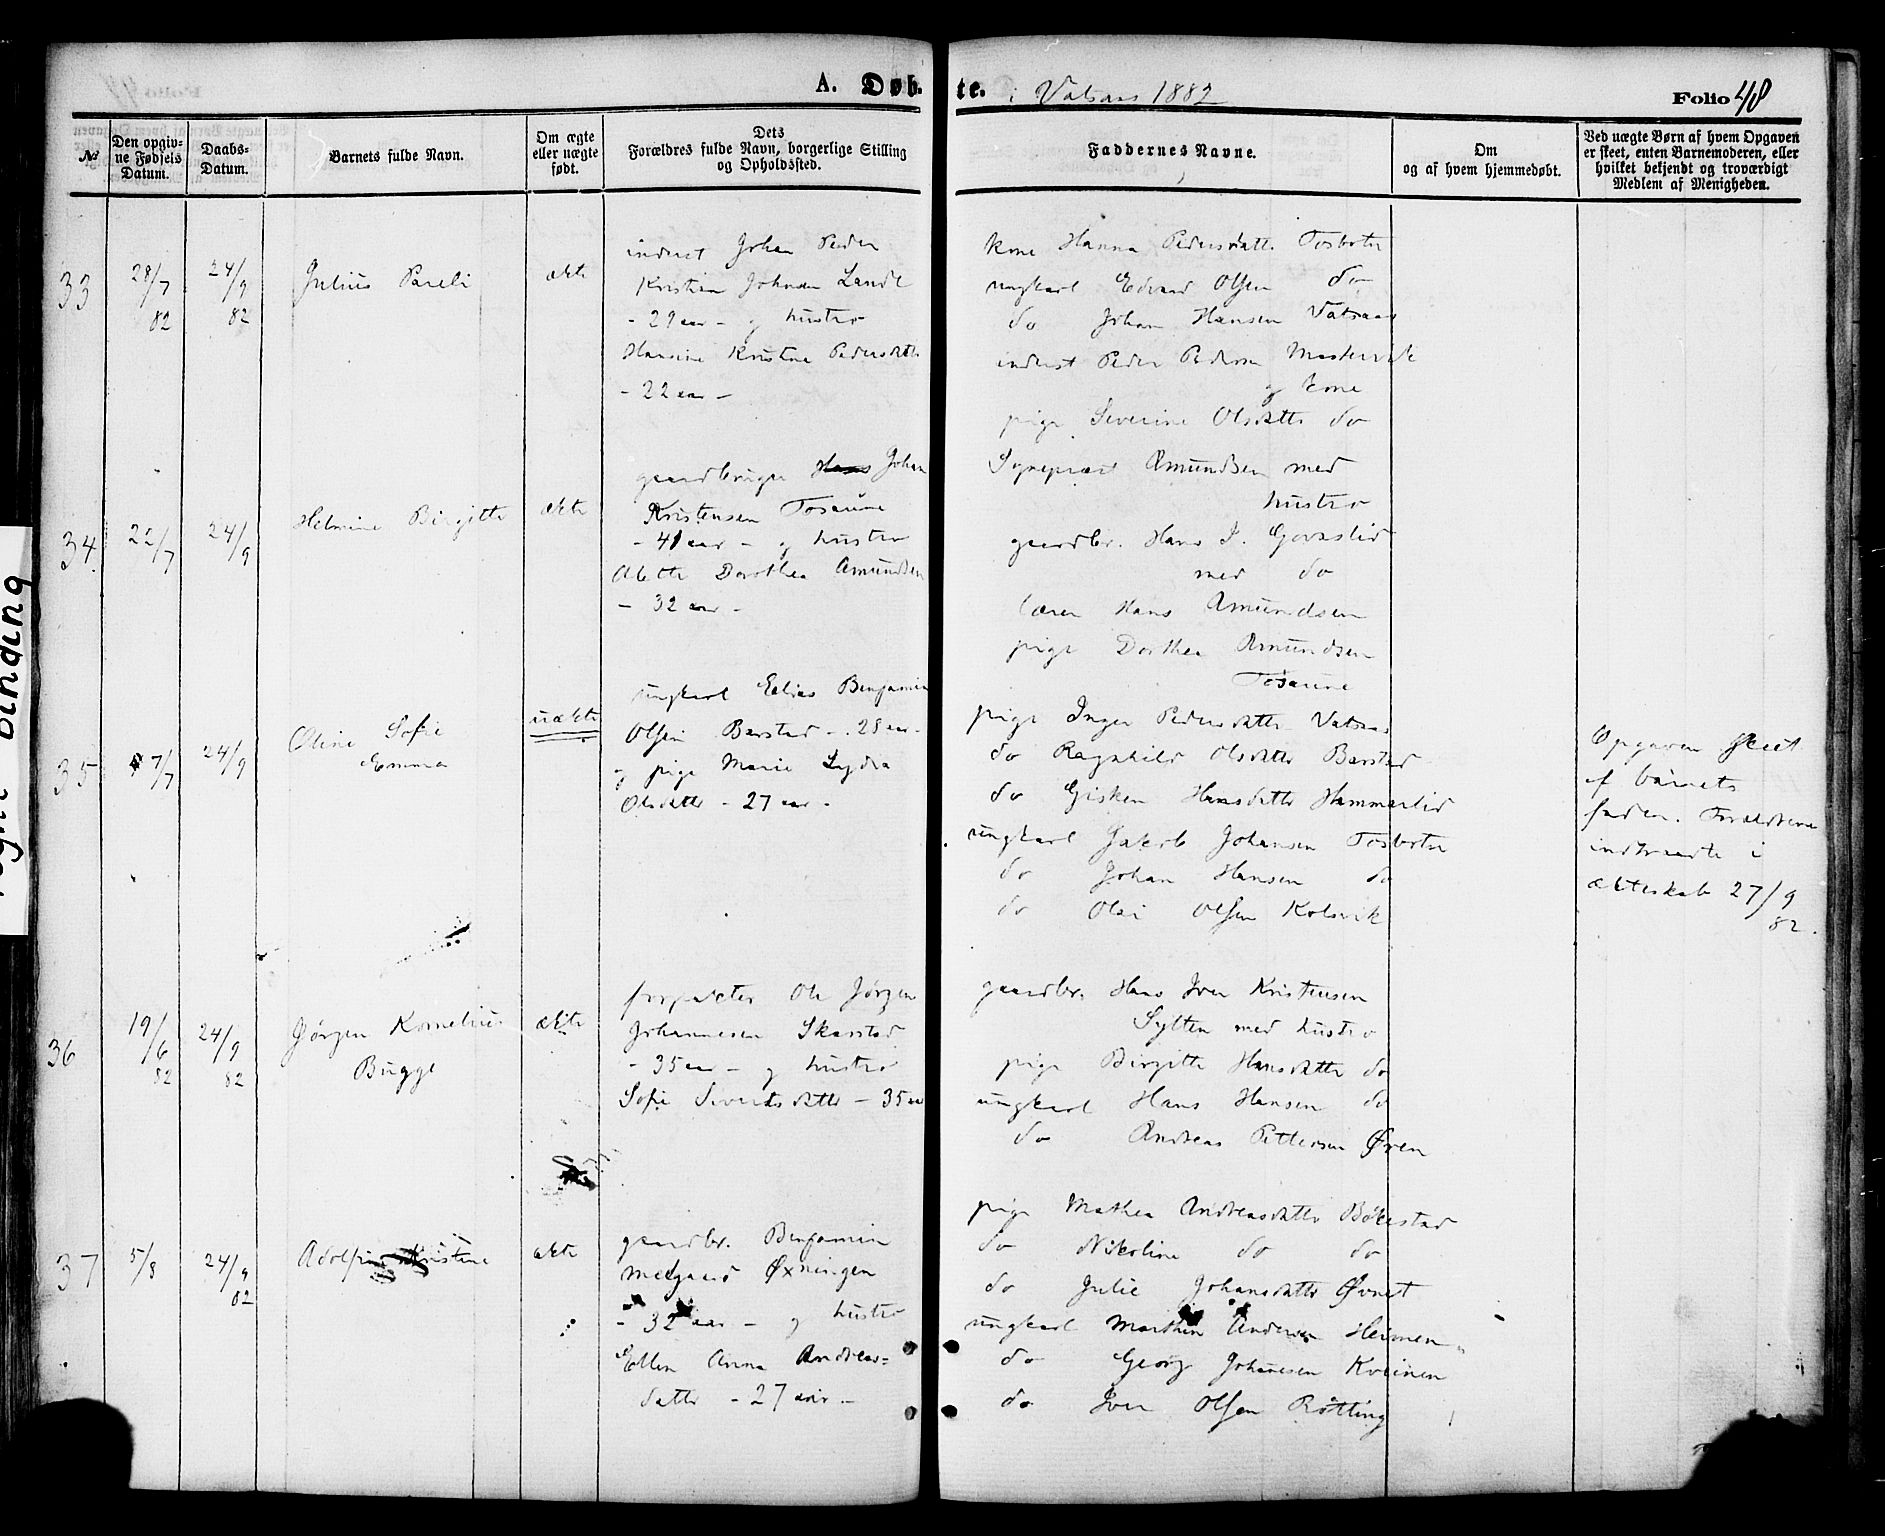 A. Døb-
te. i Vatsaas 1882
Folio 48
№
Den opgiv-
ne Fødsels
Datum.
Daabs-
Datum.
Barnets fulde Navn.
Om ægte
eller uægte
født.
Dets
Forældres fulde Navn, borgerlige Stilling
og Opholdssted.
Faddernes Navne.
Om
og af hvem hjemmedøbt.
Ved uægte Børn af hvem Opgaven
er skeet, enten Barnemoderen, eller
hvilket bekjendt og troværdigt
Medlem af Menigheden.
33
28/7 82
24/9 82
Julius Pareli
ekte
inderst Johan Peder
Kristian Johnsen Lande
- 29 aar - og hustro
Hansine Kristine Pedersdatter
- 22 aar -
kone Hanna Pedersdattr Tosbotn
ungkarl Edvard Olsen do
do Johan Hansen Vatsaas
inderst Peder Pedersen
og kone
pige Severine Olsdatter do
34.
22/7
24/9
Helmine Birgitte
ekte
gaardbruger Hans Johan
Kristensen Tosaune
- 41 aar - og hustro
Alette Dorothea Amundsen
- 32 aar -
Sogneprest Amundsen med
hustro
gaardbr. Hans J. Govaslid
med do
lærer Hans Amundsen
pige Dorthea Amundsen
Tosaune
35
7/7
24/9
Oline Sofie
Emma
uekte
ungkarl Elias Benjamin
Olsen Barstad - 25 aar -
og pige Marie Lydia
Olsdatter - 27 aar -
pige Inger Pedersdatter Vatsaas
do Ragnhild Olsdatter Barstad
do Gisken Hansdatter Hammerlid
ungkarl Jakob Johansen Tosbotn
do Johan Hansen do
do Olai Olsen Kolsvik
Opgaven skeet
af barnets
fader. Forældrene
indtraadte i
ekteskab 27/9
82.
36
19/6 82
24/9 82
Jørgen Kornelius
Bugge
ekte
forpakter Ole Jørgen
Johannesen Skarstad
- 35 aar - og hustro
Sofie Sivertsdatter - 35 aar
gaardbr. Hans Iver Kristensen
Sylten med hustro
pige Birgitte Hansdatter do
ungkarl Hans Hansen do
do Andreas Pettersen Øren
37
5/8
24/9 82
Adolfine Kristine
ekte
gaardbr. Benjamin
Medgaard Øxningen
- 32 aar - og hustro
Ellen Anna Andreas-
datter - 27 aar -
pige Mathea Andreasdatter Bøkestad
do Nikoline do do
do Julie Johansdatter Øvnet
ungkarl Marthin Andersen Heimen
do Georg Johansen Kveinen
do Iver Olsen Røtting